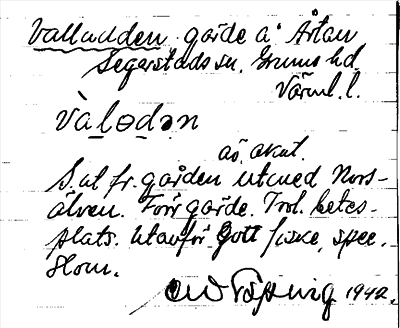 Valludden gärde å Årtan
Segerstads sn. Grums hd.
Värml. l.
vàlɵdən
aö, akut.
S. ut fr. gården utmed Nors-
älven. Förr gärde. Trol. betes-
plats. Utanför gott fiske, spec.
1942.